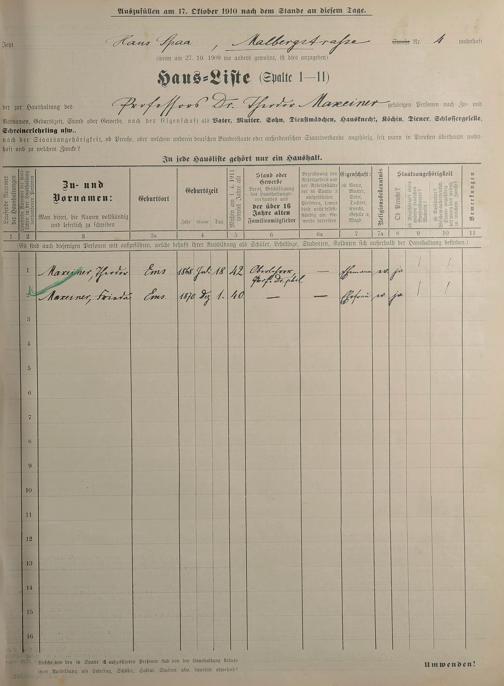 Auszufüllen am 17. Oktober 1910 nach dem Stande an diesem Tage.
Jetzt Haus Spaa, Malbergstrasse Nr. 4 wohnhaft
(wenn am 27. 10. 1909 wo anders gewohnt, ist dies anzugeben)
Haus-Liste (Spalte 1—11)
der zur Haushaltung des Professors Dr. Theodor Maxeiner gehörigen Personen nach Zu- und
Vornamen, Geburtszeit, Stand oder Gewerbe, nach der Eigenschaft als Vater, Mutter, Sohn, Dienstmädchen, Hausknecht, Köchin, Diener, Schlossergeselle,
Schreinerlehrling usw.
nach der Staatsangehörigkeit, ob Preuße, oder welchem anderen deutschen Bundesstaate oder außerdeutschen Staatsverbande angehörig, seit wann in Preußen überhaupt wohnhaft und zu welchem Zwecke?
In jede Hausliste gehört nur ein Haushalt.
Zu- und Vornamen:
Man bittet, die Namen vollständig und leserlich zu schreiben
Geburtsort
Geburtszeit
Jahr Monat Tag
Stand oder Gewerbe
der über 16 Jahre alten Familienmitglieder
Eigenschaft:
Religionsbekenntnis
Staatsangehörigkeit
Ob Preuße?
Bemerkungen
1 2 3 3a 4 5 6 6a 7 7a 8 9 10 11
1 Maxeiner, Theodor Ems 1868 Juli 18 42 Oberlehrer, Prof. Dr. phil — Ehemann ev ja
2 Maxeiner, Frieda Ems 1870 Dez 1. 40 — — Ehefrau ev ja
3
4
5
6
7
8
9
10
11
12
13
14
15
16
Umwenden!